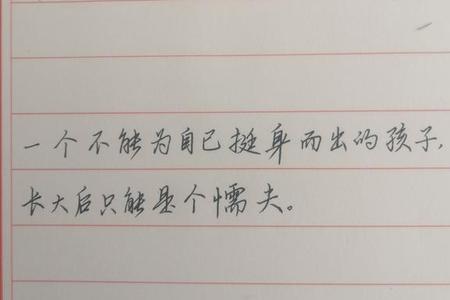 一个不能为自己挺身而出的孩子,
长大后只能是个懦夫。